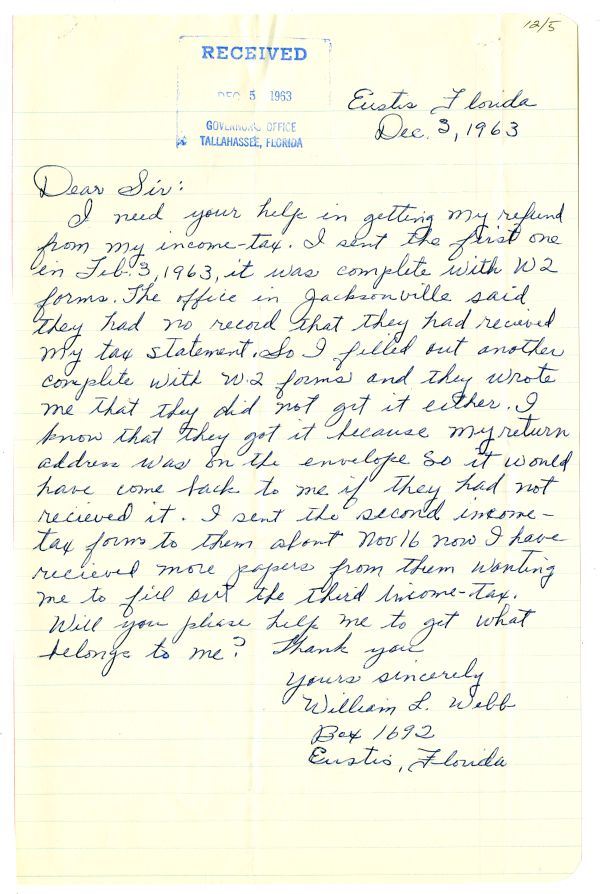 12/5
RECEIVED
DEC 5 1963
GOVERNOR'S OFFICE
TALLAHASSEE, FLORIDA
Eustis Florida
Dec. 3, 1963
Dear Sir:
I need your help in getting my refund
from my income-tax. I sent the first one
in Feb. 3, 1963, it was complete with W2
forms. The office in Jacksonville said
they had no record that they had recieved
my tax statement. So I filled out another
complete with W.2 forms and they wrote
me that they did not get it either. I
know that they got it because my return
address was on the envelope so it would
have come back to me if they had not
recieved it. I sent the second income-
tax forms to them about Nov 16 now I have
recieved more papers from them wanting
me to fill out the third Income-tax.
Will you please help me to get what
belongs to me? Thank you
Yours sincerely
William L. Webb
Box 1692
Eustis, Florida